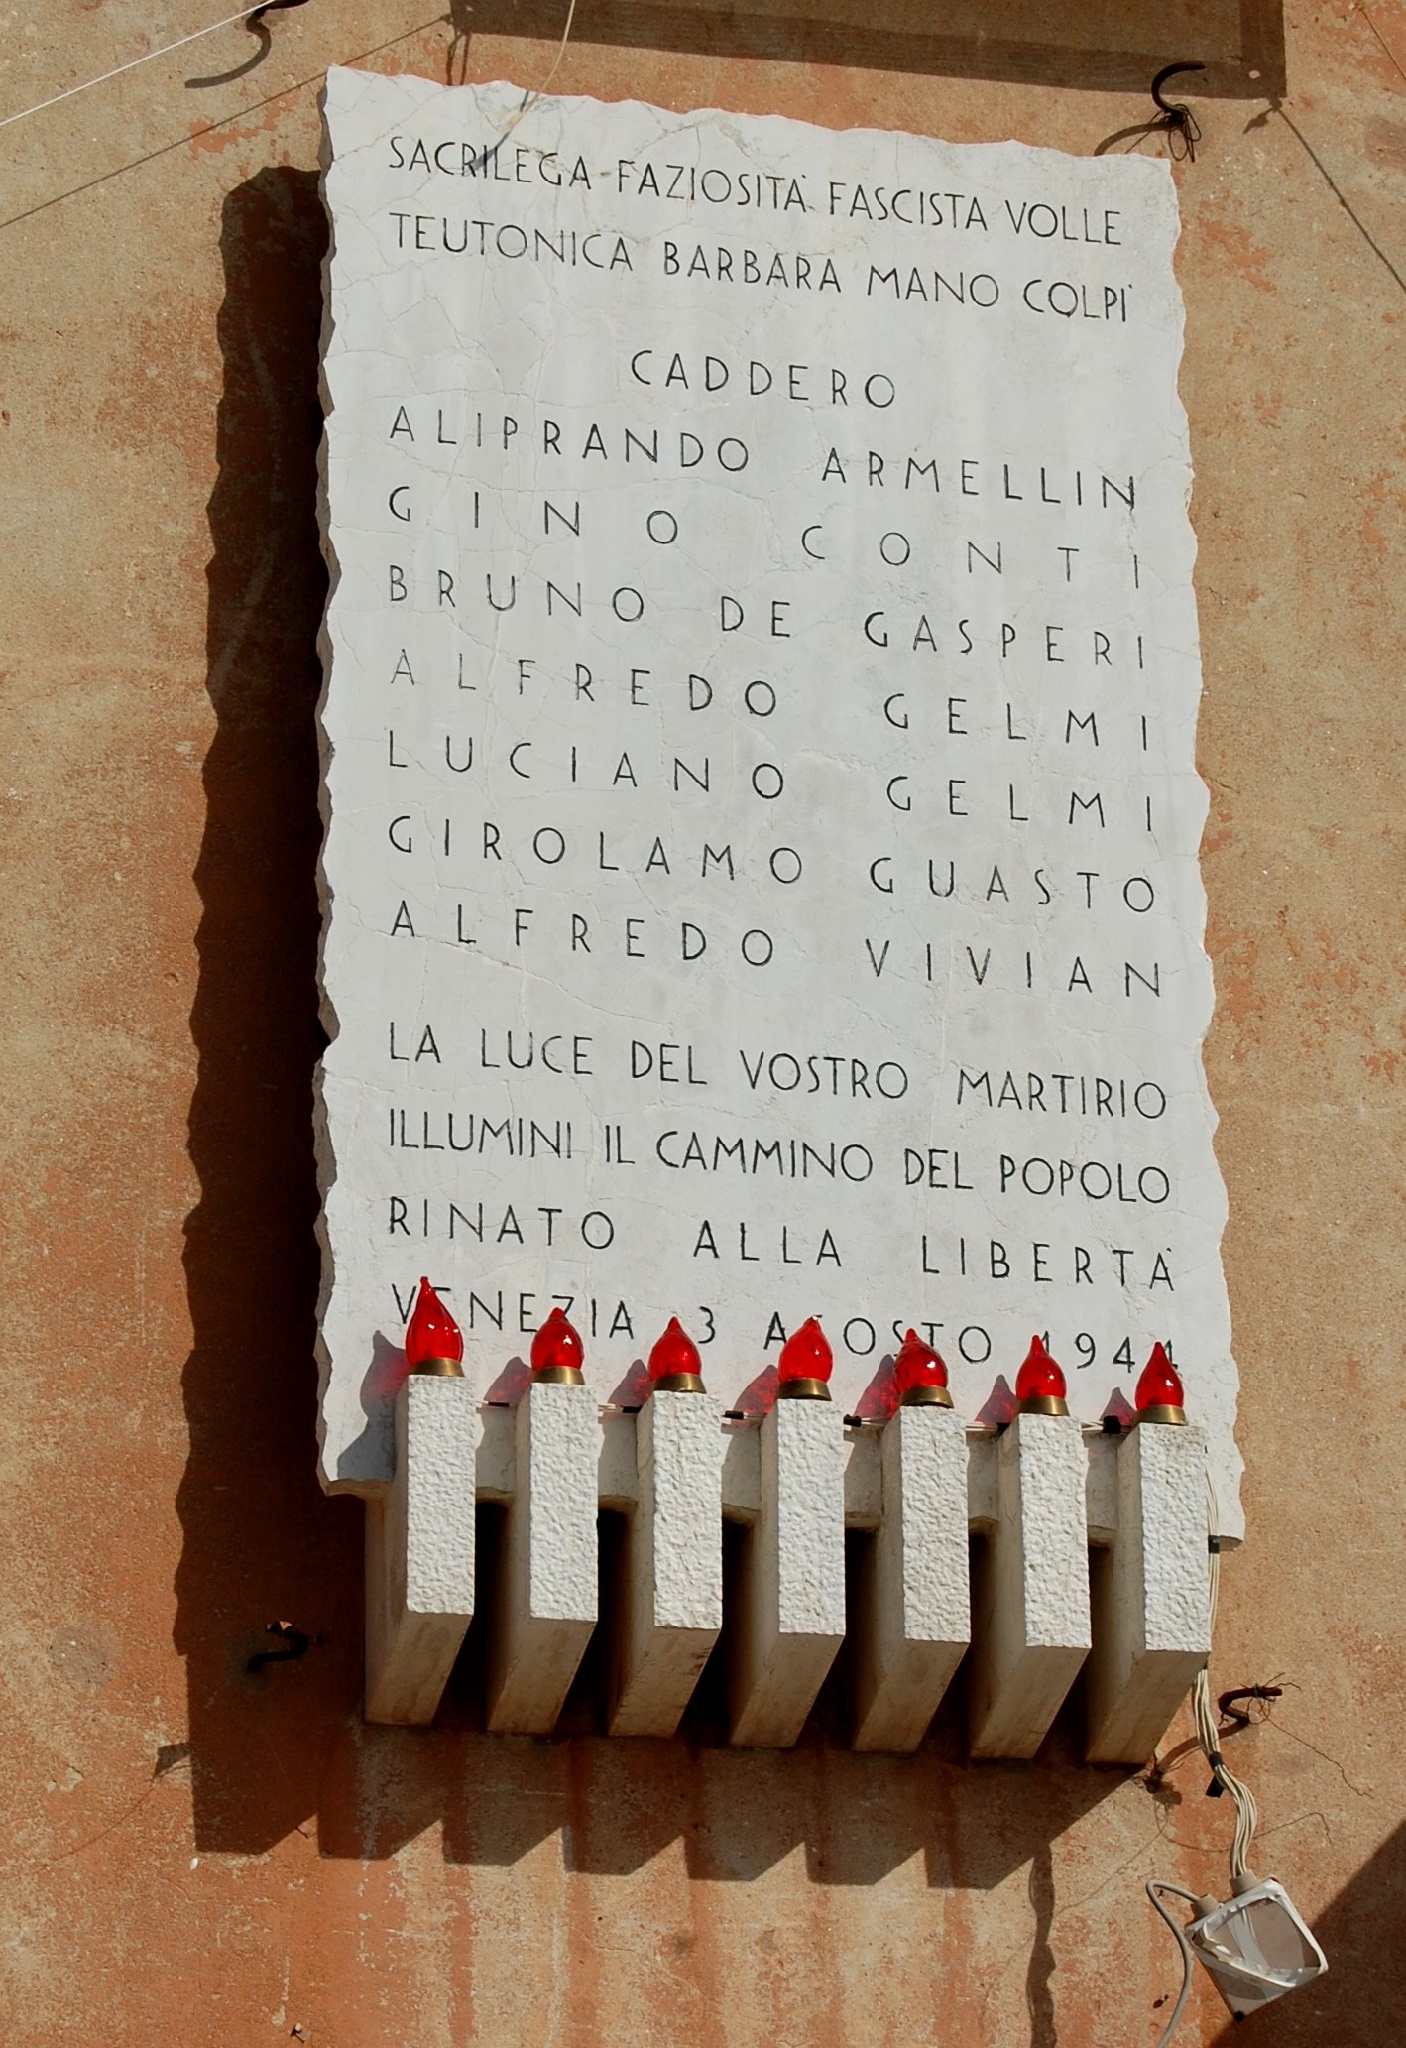 SACRILEGA FAZIOSITÀ FASCISTA VOLLE
TEUTONICA BARBARA MANO COLPÌ
CADDERO
ALIPRANDO ARMELLIN
GINO CONTI
BRUNO DE GASPERI
ALFREDO GELMI
LUCIANO GELMI
GIROLAMO GUASTO
ALFREDO VIVIAN
LA LUCE DEL VOSTRO MARTIRIO
ILLUMINI IL CAMMINO DEL POPOLO
RINATO ALLA LIBERTÀ
VENEZIA 3 AGOSTO 1944